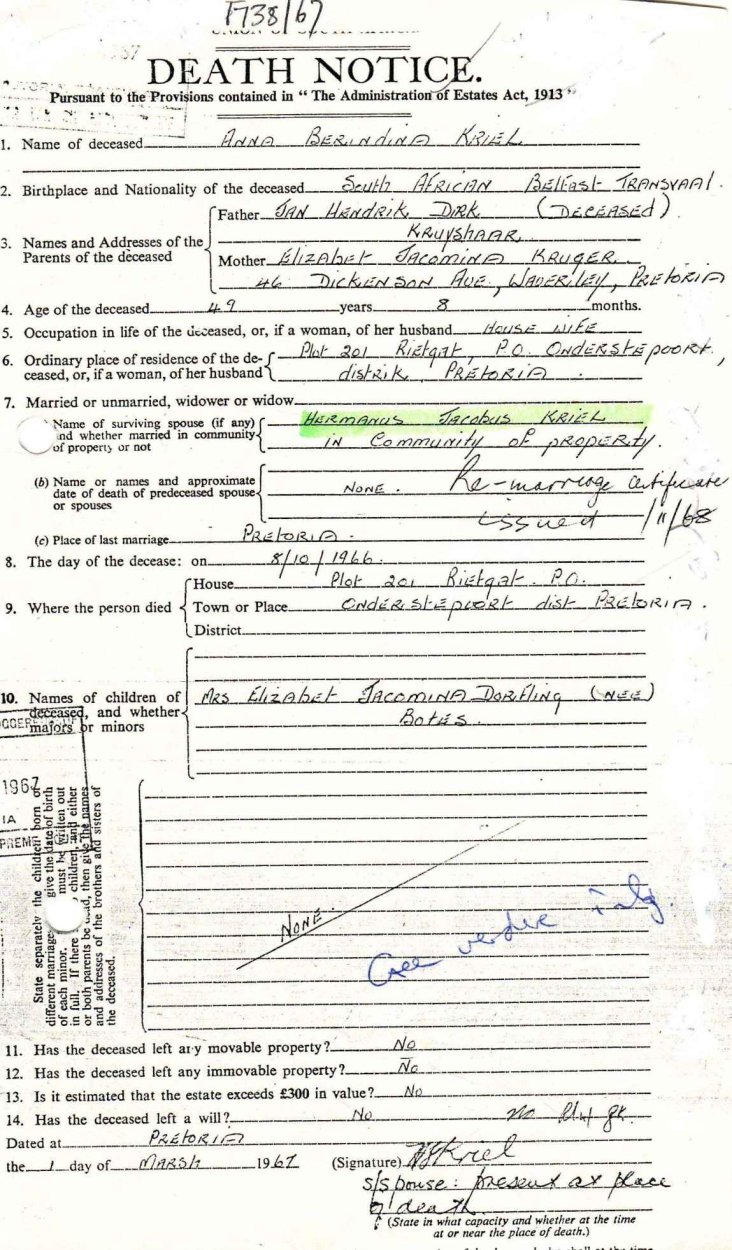 1738/67
UNION OF SOUTH AFRICA
DEATH NOTICE.
Pursuant to the Provisions contained in "The Administration of Estates Act, 1913"
1. Name of deceased ANNA BERINDINA KRIEL
2. Birthplace and Nationality of the deceased South AFRICAN Belfast TRANSVAAL.
3. Names and Addresses of the Parents of the deceased
Father JAN HENDRIK DIRK (DECEASED)
KRUYSHAAR
Mother ELIZABET JACOMINA KRUGER.
46 DICKENSON AVE, WAVERLEY, PRETORIA
4. Age of the deceased 49 years 8 months.
5. Occupation in life of the deceased, or, if a woman, of her husband HOUSE WIFE
6. Ordinary place of residence of the deceased, or, if a woman, of her husband
Plot 201 Rietgat, P.O. ONDERSTEPOORT,
distrik, PRETORIA.
7. Married or unmarried, widower or widow
Name of surviving spouse (if any) and whether married in community of property or not
HERMANUS JACOBUS KRIEL
IN COMMUNITY OF PROPERTY.
(b) Name or names and approximate date of death of predeceased spouse or spouses
NONE. Re-marriage certificate
issued 1/11/68
(c) Place of last marriage PRETORIA.
8. The day of the decease: on 8/10/1966.
9. Where the person died
House Plot 201 Rietgat. P.O.
Town or Place ONDERSTEPOORT dist PRETORIA.
District
10. Names of children of deceased, and whether majors or minors
MRS ELIZABET JACOMINA DORFLING (NEE)
BOTES.
1967
IA
State separately the children born of
different marriage give the date of birth
of each minor. must be written out
in full. If there children, and either
or both parents be dead, then give the names
and addresses of the brothers and sisters of
the deceased.
NONE.
Geen verdere
11. Has the deceased left any movable property? No
12. Has the deceased left any immovable property? No
13. Is it estimated that the estate exceeds £300 in value? No
14. Has the deceased left a will? No no
Dated at PRETORIA
the 1 day of MARSH 1967 (Signature) HJKriel
s/spouse: present at place
of death.
(State in what capacity and whether at the time
at or near the place of death.)